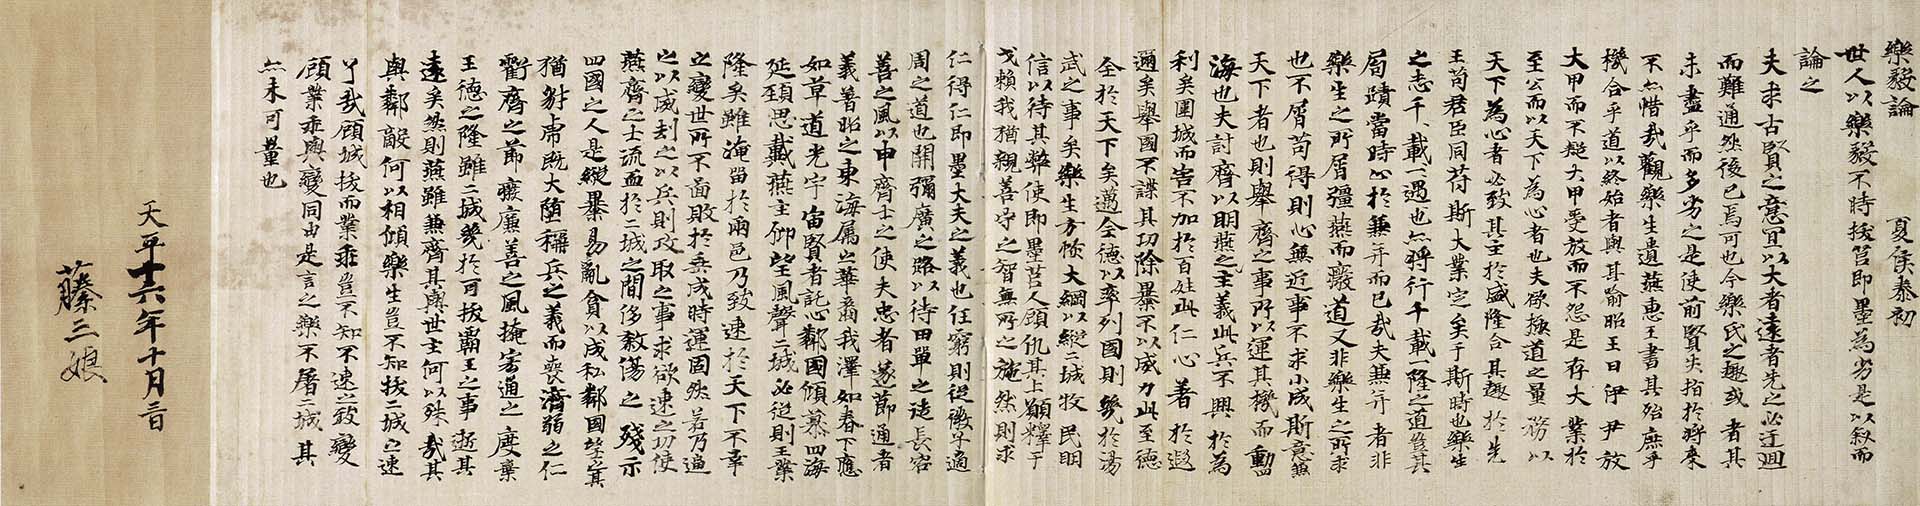 樂毅論　夏侯泰初
世人以樂毅不時拔莒即墨為劣是以叙而
論之
夫求古賢之意冝以大者遠者先之必迂迴
而難通然後已焉可也今樂氏之趣或者其
未盡乎而多劣之是使前賢失指於将來
不亦惜哉觀樂生遺燕惠王書其殆庶乎
機合乎道以終始者與其喻昭王曰伊尹放
大甲而不疑大甲受放而不怨是存大業於
至公而以天下為心者也夫欲極道之量務以
天下為心者必致其主於盛隆合其趣於先
王苟君臣同苻斯大業定矣于斯時也樂生
之志千載一遇也亦将行千載隆之道豈其
局蹟當時止於兼并而已哉夫兼并者非
樂生之所屑彊燕而廢道又非樂生之所求
也不屑苟得則心無近事不求小成斯意兼
天下者也則舉齊之事所以運其機而動四
海也夫討齊以明燕之主義此兵不興於為
利矣圍城而害不加於百姓此仁心著於遐
邇矣舉國不謀其功除暴不以威力此至德
全於天下矣邁全德以率列國則幾於湯
武之事矣樂生方恢大綱以縱二城牧民明
信以待其弊使即墨莒人顧仇其上願釋干
戈賴我猶親善守之智無所之施然則求
仁得仁即墨大夫之義也任窮則從微子適
周之道也開彌廣之路以待田單之徒長容
善之風以申齊士之使夫忠者遂節通者
義著昭之東海属之華裔我澤如春下應
如草道光宇宙賢者託心鄰國傾慕四海
延頸思戴燕主仰望風聲二城必從則王業
隆矣雖淹留於兩邑乃致速於天下不幸
之變世所不啚敗於垂成時運固然若乃逼
之以威刦之以兵則攻取之事求欲速之功使
燕齊之士流血於二城之間侈煞傷之殘示
四國之人是縱暴易亂貪以成私鄰國望之其
猶豺虎既大墮稱兵之義而喪濟弱之仁
虧齊之節廢廉善之風掩宏通之度棄
王德之隆雖二城幾於可拔霸王之事逝其
遠矣然則燕雖兼齊其與世主何以殊哉其
與鄰敵何以相傾樂生豈不知拔二城之速
了哉顧城拔而業乖豈不知不速之致變
顧業乖與變同由是言之樂不屠二城其
亦未可量也
天平十六年十月三日
藤三娘